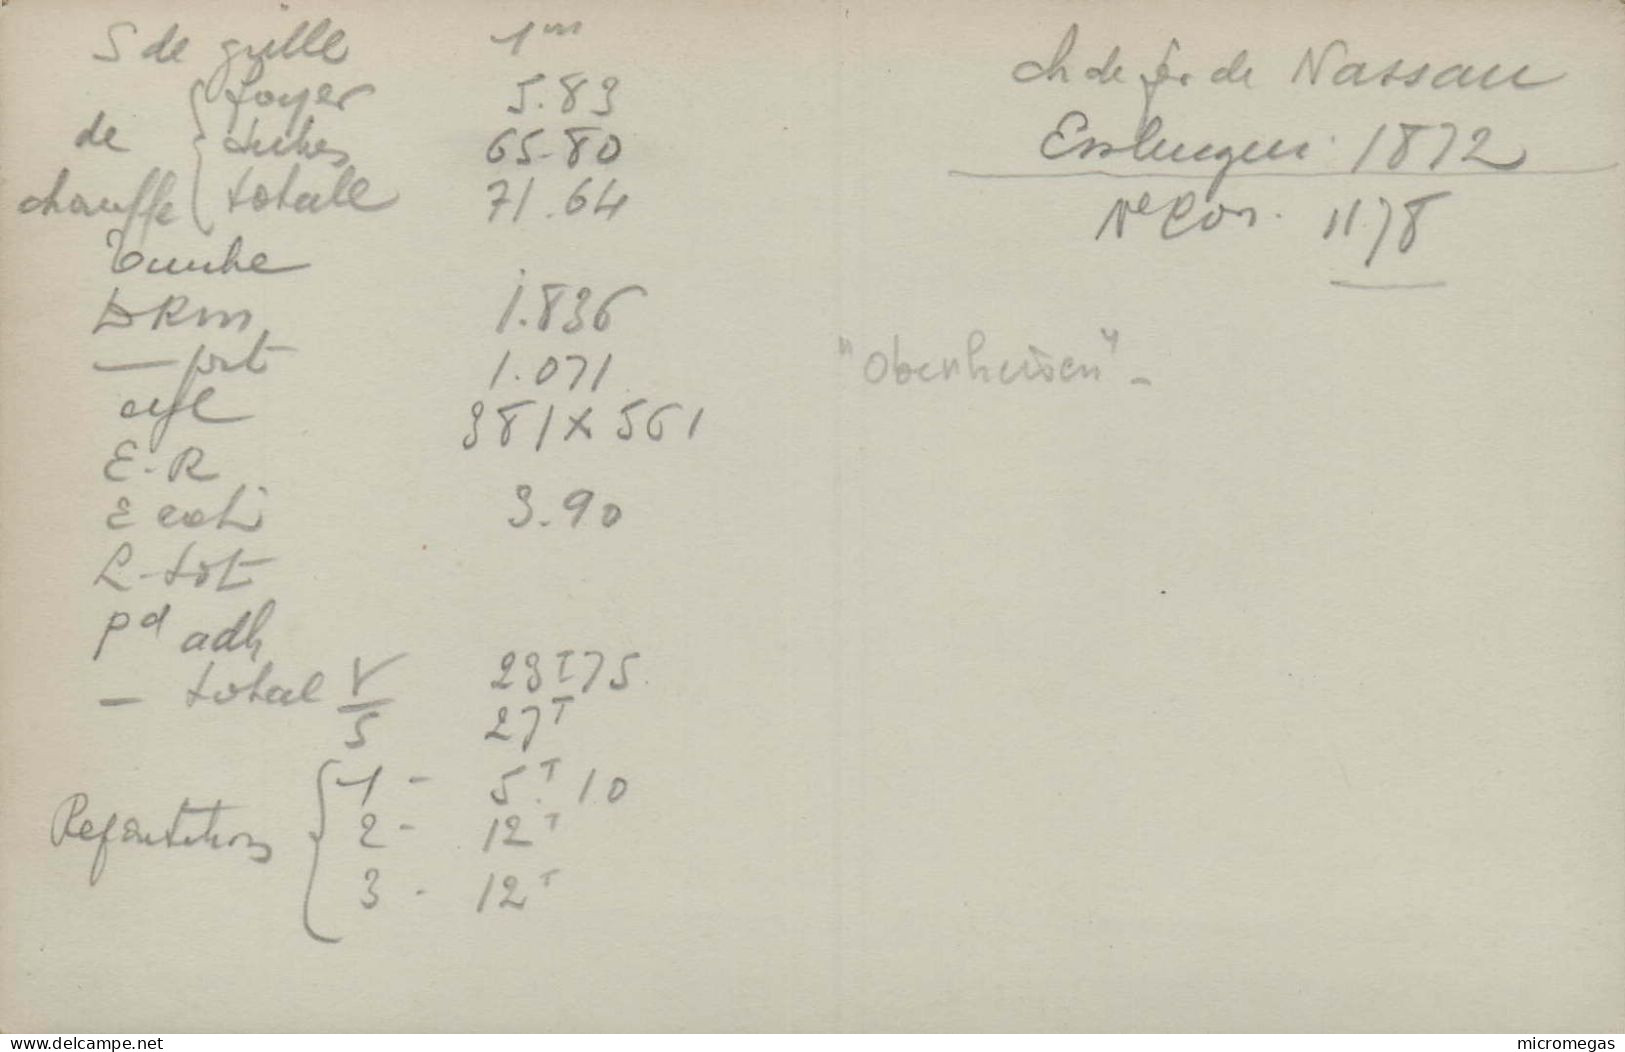 S de grille 1m
de chauffe { foyer 5.83
tubes 65.80
totale 71.64
Timbre
DRm 1.836
— prt 1.071
cyl 381 x 561
E-R
E ext 3.90
L-tot
Pd adh
— total V 23T75
S 27T
Repartition { 1 - 5T.10
2 - 12T
3 - 12T
ch de fer de Nassau
Esslingen 1872
No Con. 1178
"Obenheisen" -
Du site delcampe.net
micromegas